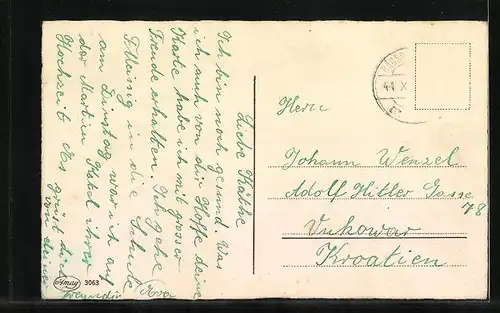 Liebe Käthe
Ich bin noch gesund. Was
ich auch von dir Hoffe deine
Karte habe ich mit grosser
Freude erhalten. Ich gehe
fleissig in die Schule
am Dinstag war ich auf
der Martin ihrer
Hochzeit Es grüst dich
von deiner
freundin Eva
Amag 3063
Herrn
Johann Wenzel
Adolf Hitler Gasse
78
Vukowar
Kroatien